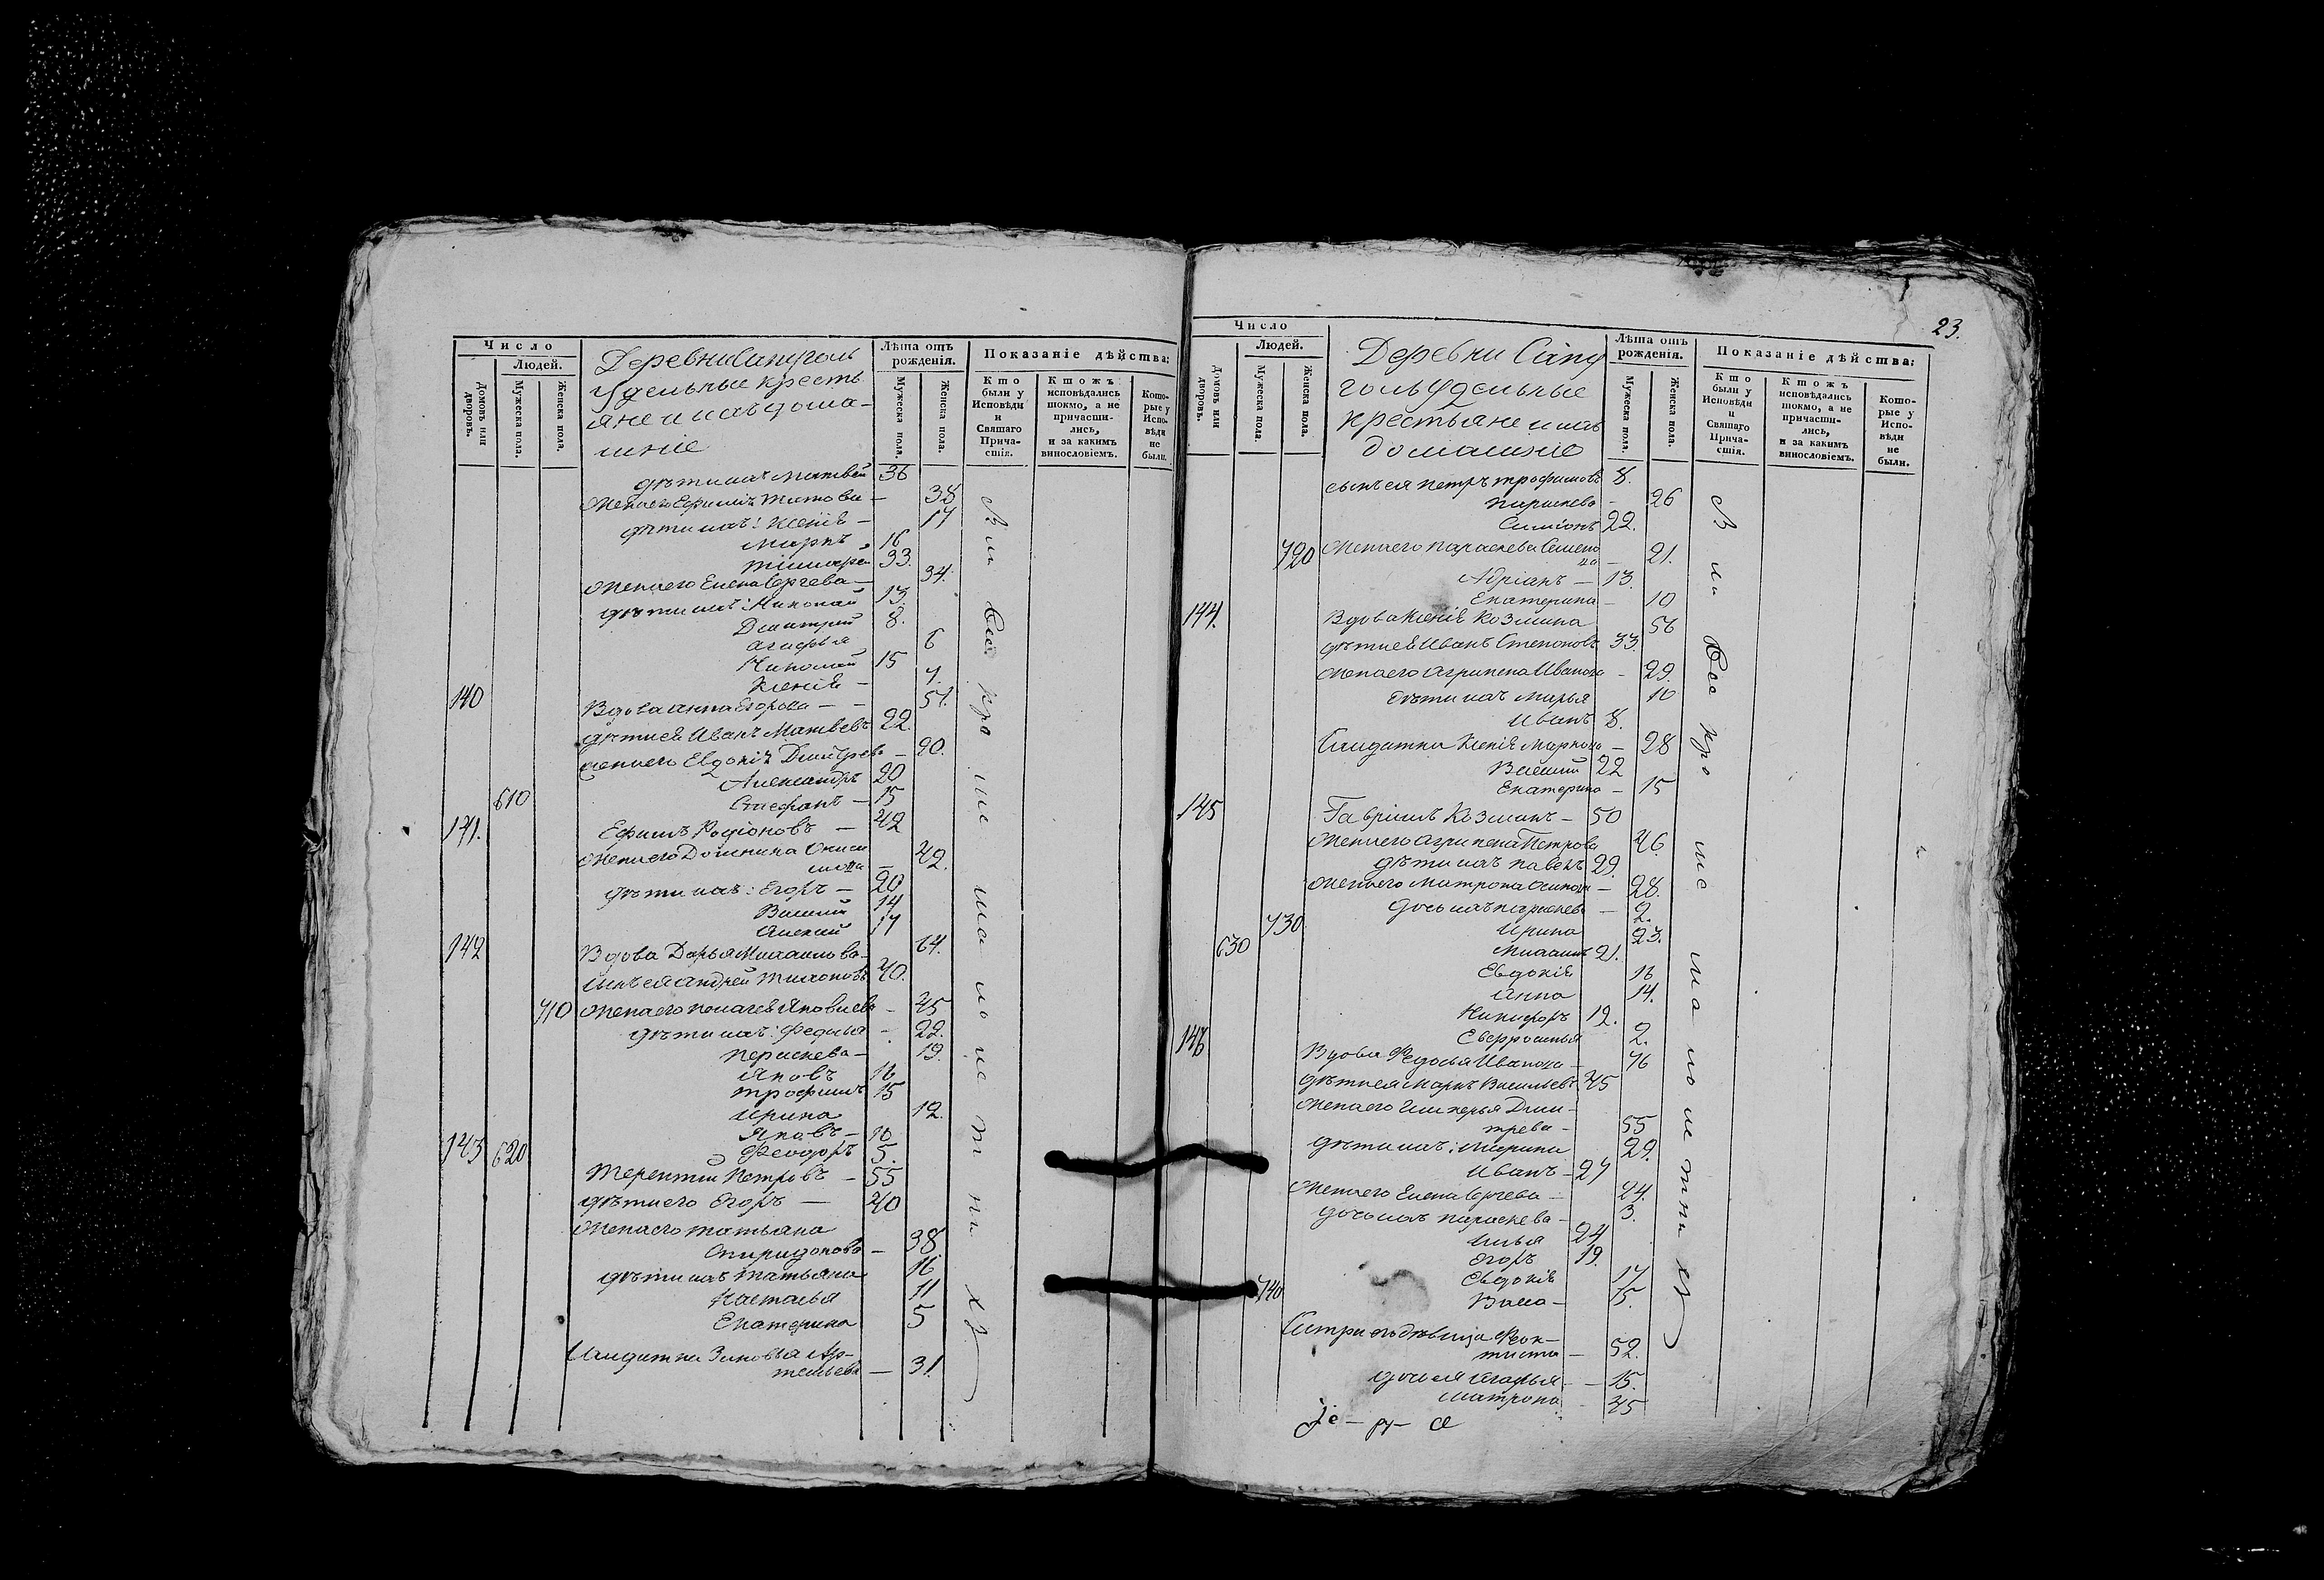 Число
Людей.
Домовъ или дворовъ.
Мужеска пола.
Женска пола.
Деревни Сапуголь
Удельные кресть
яне и ихъ дома-
шніе
Лѣта отъ рожденія.
Мужеска пола.
Женска пола.
Показаніе дѣйства:
Кто были у Исповѣди и Святаго Прича-стія.
Ктожъ исповѣдались токмо, а не причасти-лись, и за какимъ винословіемъ.
Кото-рые у Испо-вѣди не были.
дѣти ихъ Матвей 36
Жена его Ефимія Титова — 38
дѣти ихъ: Ксенія — 17
Маркъ 16
33.
Жена его Елена Сергева — 34.
дѣти ихъ: Николай 13
Дмитрій 8.
Агафья 6
Николай 15
Ксенія — 7.
140 Вдова Анна Егорова — 51.
дѣти ея Иванъ Матвѣевъ 22.
жена его Евдокія Дмитрева — 20.
Александръ 20
610 Стефанъ — 15
141. Ефимъ Родіоновъ — 42
Жена его Домника Ониси
мова — 42.
дѣти ихъ: Егоръ — 20
Василій 14
Алексій 17
142 Вдова Дарья Михаилова — 64.
сынъ ея Андрей Тихоновъ 40.
710 Жена его Пелагея Яковлева — 45
дѣти ихъ: Федосья — 22.
Параскева — 19.
Яковъ 16
Трофимъ 15
Ирина 12.
Яковъ — 10
620 Феодоръ 5.
143 Терентій Петровъ — 55
дѣти его Егоръ — 40
Жена его Татьяна
Спиридонова — 38.
дѣти ихъ Татьяна 16
Наталья 11
Екатерина 5
Салдатка Зиновья Ар-
темьева — 31.
Вси Все кро ме ма ло ле т ни хъ
23.
Число
Людей.
Домовъ или дворовъ.
Мужеска пола.
Женска пола.
Деревни Сапу
голь Удельные
крестьяне и ихъ
домашніе
Лѣта отъ рожденія.
Мужеска пола.
Женска пола.
Показаніе дѣйства:
Кто были у Исповѣди и Святаго Прича-стія.
Ктожъ исповѣдались токмо, а не причасти-лись, и за какимъ винословіемъ.
Кото-рые у Испо-вѣди не были.
сынъ ея Петръ Трофимовъ 8.
Параскева — 26
Симіонъ 22.
720 Жена его Параскева Семено
ва — 21.
Адріанъ — 13.
Екатерина — 10
144. Вдова Ксенія Козмина 56
дѣти ея Иванъ Степановъ 33.
жена его Агрипена Иванова — 29.
дѣти ихъ Марья 10
Иванъ 8.
Салдатка Ксенія Маркова — 28
Василій 22
Екатерина — 15
145 Гавріилъ Козминъ — 50
Жена его Агрипена Петрова 46.
дѣти ихъ Павелъ 29.
Жена его Матрона Осипова — 28.
дочь ихъ Параскева — 2.
730 Ирина 23.
630 Михаилъ 21.
Евдокія 16
Анна 14.
Никифоръ 12.
2.
146 Вдова Федосья Иванова — 76
дѣти ея Маркъ Васильевъ 45
Жена его Гликерья Дми-
трева — 55
дѣти ихъ: Марина 29.
Иванъ — 27
Жена его Елена Сергева — 24.
дочь ихъ Параскева — 3.
Илья 24
Егоръ 19.
Евдокія 17
740 Васса — 15.
Сестра его дѣвица Феок-
тиста — 52.
дочь ея Агафья — 15.
Матрона 45
Іе — ру — а
Вси Все кро ме ма ло ле тни хъ